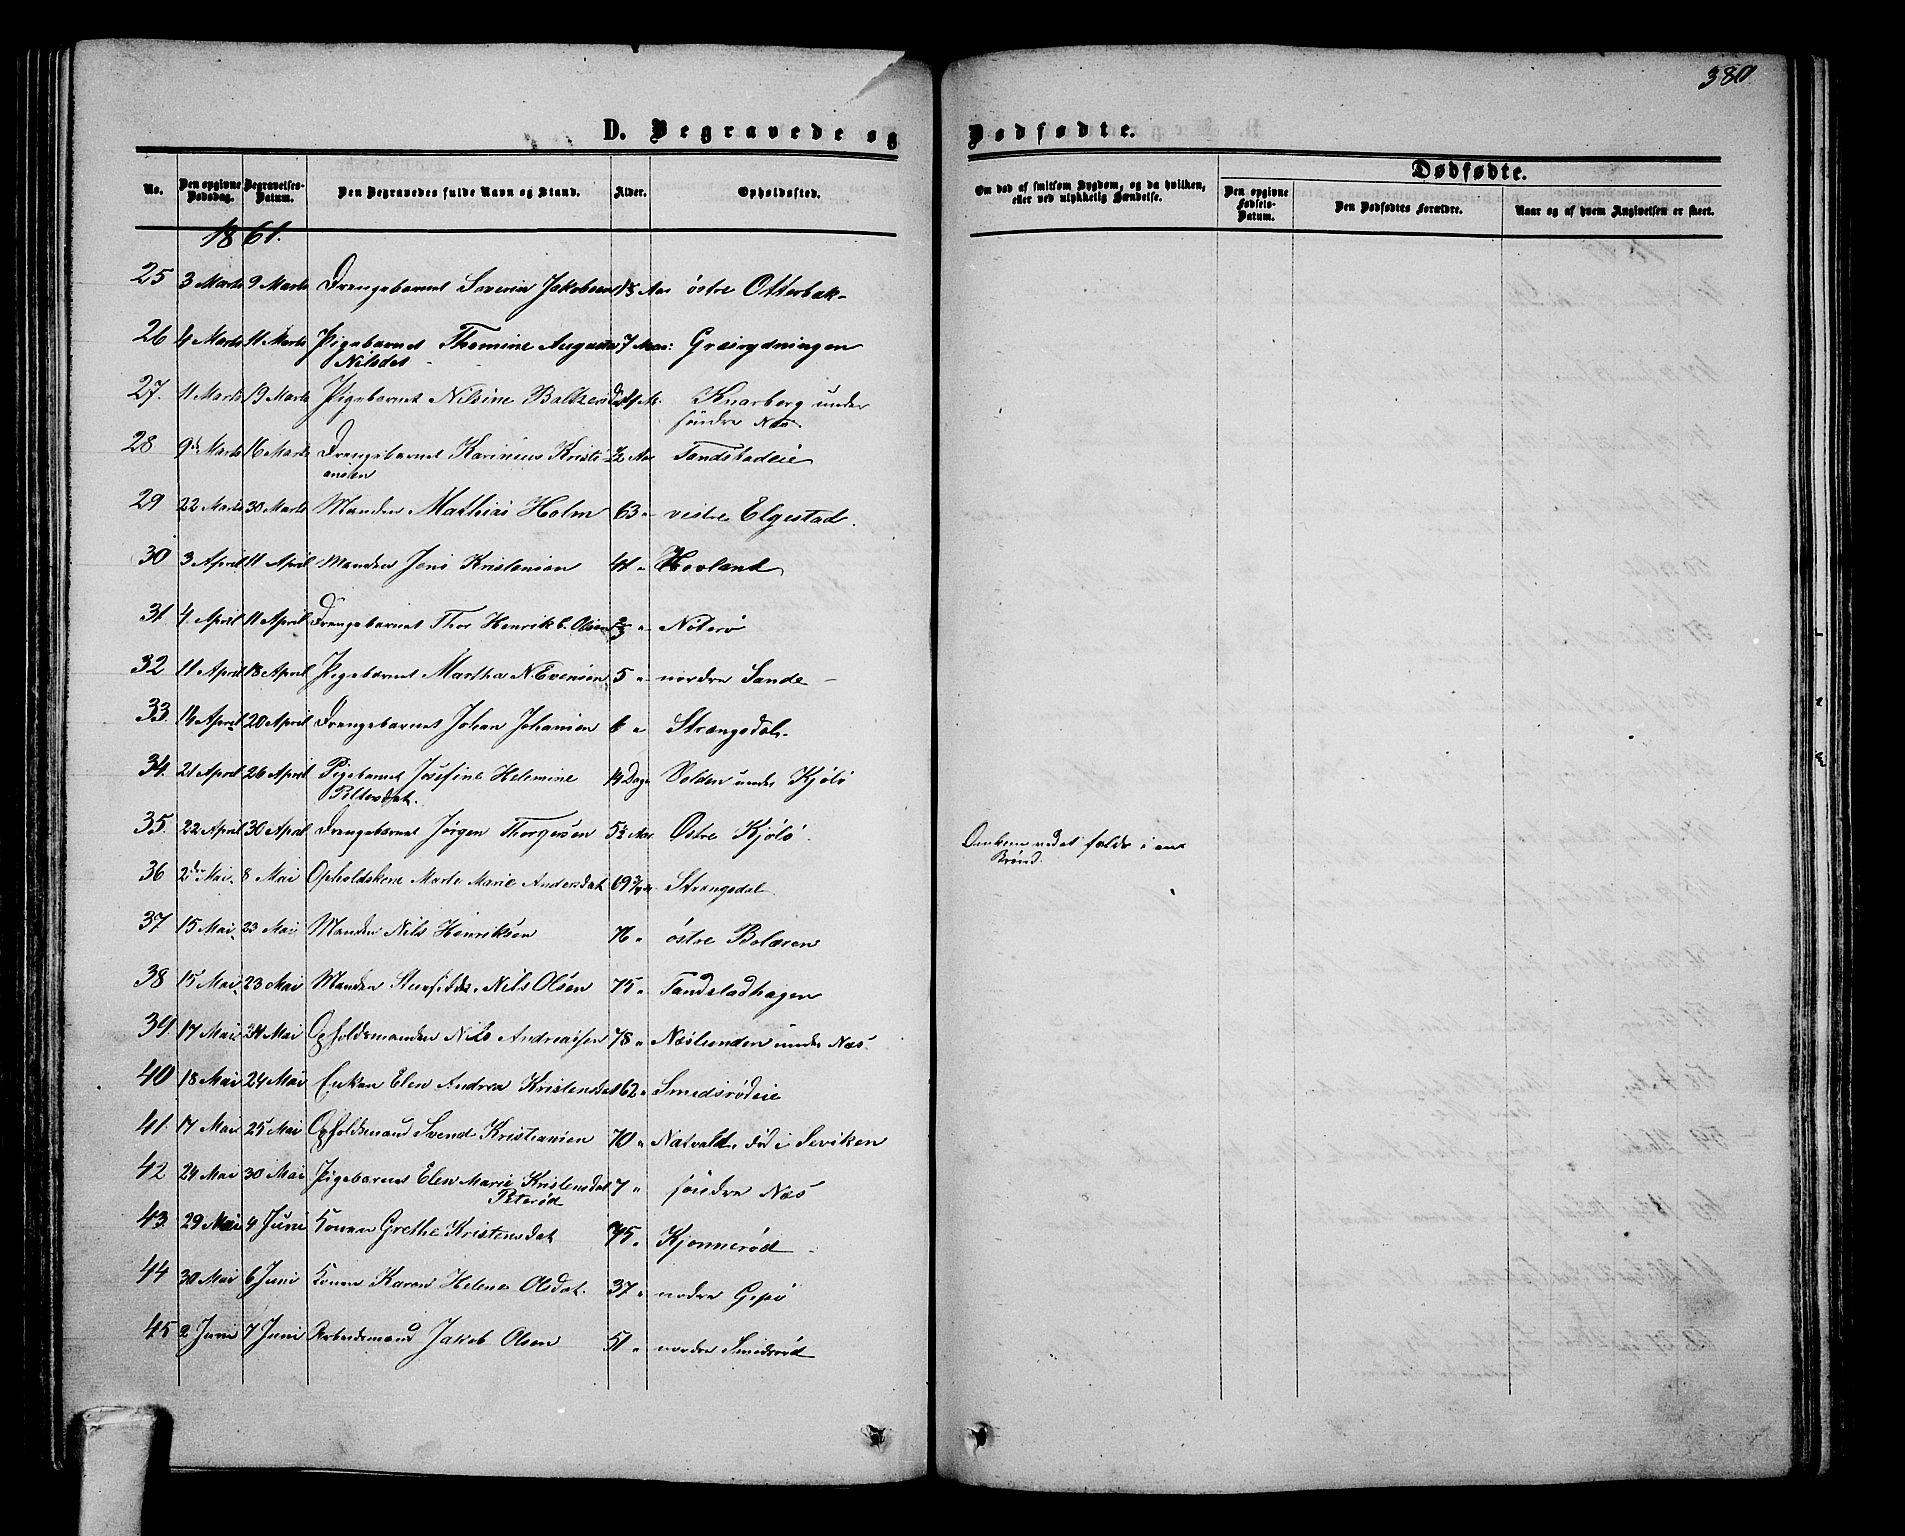 380
D. Begravede og Dødfødte.
No. Den opgivne Dødsdag. Begravelses-Datum. Den Begravedes fulde Navn og Stand. Alder. Opholdssted.
Om død af smitsom Sygdom, og da hvilken, eller ved ulykkelig Hændelse.
Dødfødte.
Den opgivne Fødsels-Datum. Den Dødfødtes Forældre. Naar og af hvem Angivelsen er skeet.
1861.
25 3 Marts 9 Marts Drengebarnet Severin Jakobsen Aar østre Otterbæk
26 4 Marts 11 Marts Pigebarnet Thomine Augusta 7 Græsrydningen
Nilsdat
27. 11 Marts 19 Marts Pigebarnet Nilsine Baltzersdat Knarberg under
søndre Næs
28 9de Marts 16 Marts Drengebarnet Karinius Kristi ½ Aar Tandstadeie
ansen
29 22 Marts 30 Marts Manden Mathias Holm 63 " vestre Elgestad.
30 3 April 11 April Manden Jens Kristensen 41 " Hovland
31. 4 April 11 April Drengebarnet Thor Henrik Olsen " Nøterø
32 11 April 18 April Pigebarnet Martha N. Evensen 5 " nordre Sande
33. 14 April 20 April Drengebarnet Johan Johansen 6 " Strængsdal
34. 21 April 26 April Pigebarnet Josefine Helemine 14 Dage Volden under Kjølø
Pettersdat.
35. 22 April 30 April Drengebarnet Jørgen Thorgersen 5½ Aar Østre Kjølø. Omkom ved at falde i en
Brønd.
36 2den Mai 8 Mai Opholdskone Marte Marie Andersdat 69 Strængsdal
37 15 Mai 23 Mai Manden Nils Henriksen 76 " østre Bolæren
38 15 Mai 23 Mai Manden Nils Olsen 75 " Tandstadhagen
39. 17 Mai 24 Mai Opholdsmanden Nils Andreassen 78 " Næslunden under Næs
40 18 Mai 24 Mai Enken Elen Andrea Kristensdat 62 " Smidsrødeie
41. 17 Mai 25 Mai Opholdsmand Svend Kristiansen 70 " Natvald, død i Seviken
42 24 Mai 30 Mai Pigebarnet Elen Marie Kristensdat 7 " søndre Næs
Peterød
43. 29 Mai 4 Juni Konen Grethe Kristensdat 75 " Kjønnerød
44 30 Mai 6 Juni Konen Karen Helene Olsdat. 37 " nordre Gipø
45 2 Juni 7 Juni Arbeidsmand Jakob Olsen 51 " nordre Smidsrød